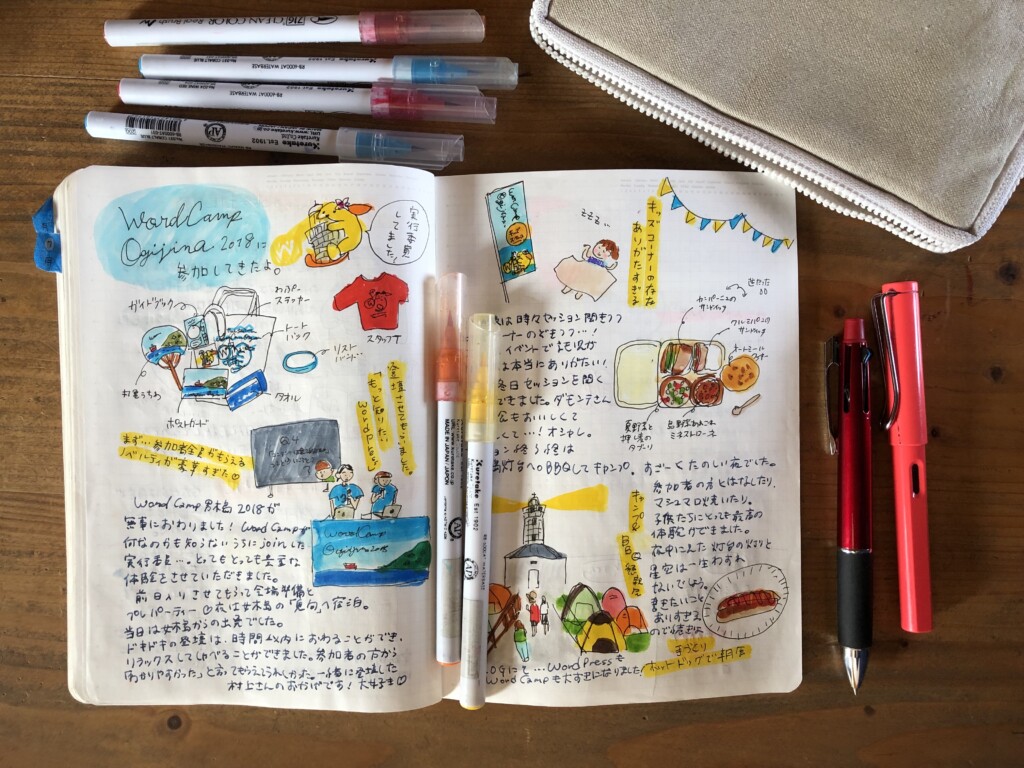 716 CLEAN COLOR Real Brush
RB-6000AT WATERBASE
RB-6000AT WATERBASE
Kuretake Est.1902
WordCamp
Ogijima 2018に
参加してきたよ。
実行委員
してました!
W
ガイドブック
わぷー
ステッカー
トート
バッグ
リスト
バンド
スタッフT
村営うちわ
タオル
ポストカード
まず…参加者全員がもらえる
ノベルティが豪華すぎた♡
登壇させてもらいました。
もっと知りたい
WordPress
WordCamp
Ogijima2018
Word Camp 男木島 2018が
無事におわりました! Word Campが
何なのかも知らないうちにjoinした
実行委員…。とってもとっても貴重な
体験をさせていただきました。
前日入りさせてもらって会場準備と
プレパーティー♡夜は女木島の
当日は女木島からの出発でした。
ドキドキの登壇は、時間以内におわることができ、
リラックスしてしゃべることができました。参加者の方から
「わかりやすかった」と言ってもらえてうれしかった
一緒に登壇した
村上さんのおかげです! 大好き♡
zzz
キッズコーナーの存在
ありがたすぎる
カンパーニュの
サンドイッチ
クルミパンの
サンドイッチ
オートミール
クッキー
夏野菜と
押し麦の
タブーリ
島野菜
ミネストローネ
は時々セッション聞きつつ
ーナーのぞきつつ…!
イベントで託児が
は本当にありがたい!
毎日セッションを聞く
できました。ダモンテさん
もおいしくて
して…! オシャレ。
灯台へBBQしてキャンプ。すごーくたのしい夜でした。
キャンプ&
BBQ
参加者の方とはなしたり、
マシュマロ焼いたり。
子供たちにとっても最高の
体験ができました。
夜中にみた灯台の灯りと
星空は一生わすれ
ないでしょう。
書きたいこと
ありすぎる
ので
てづくり
ホットドッグで朝食
WordPressも
WordCampも大すきになりました!
MADE IN JAPAN
Kuretake